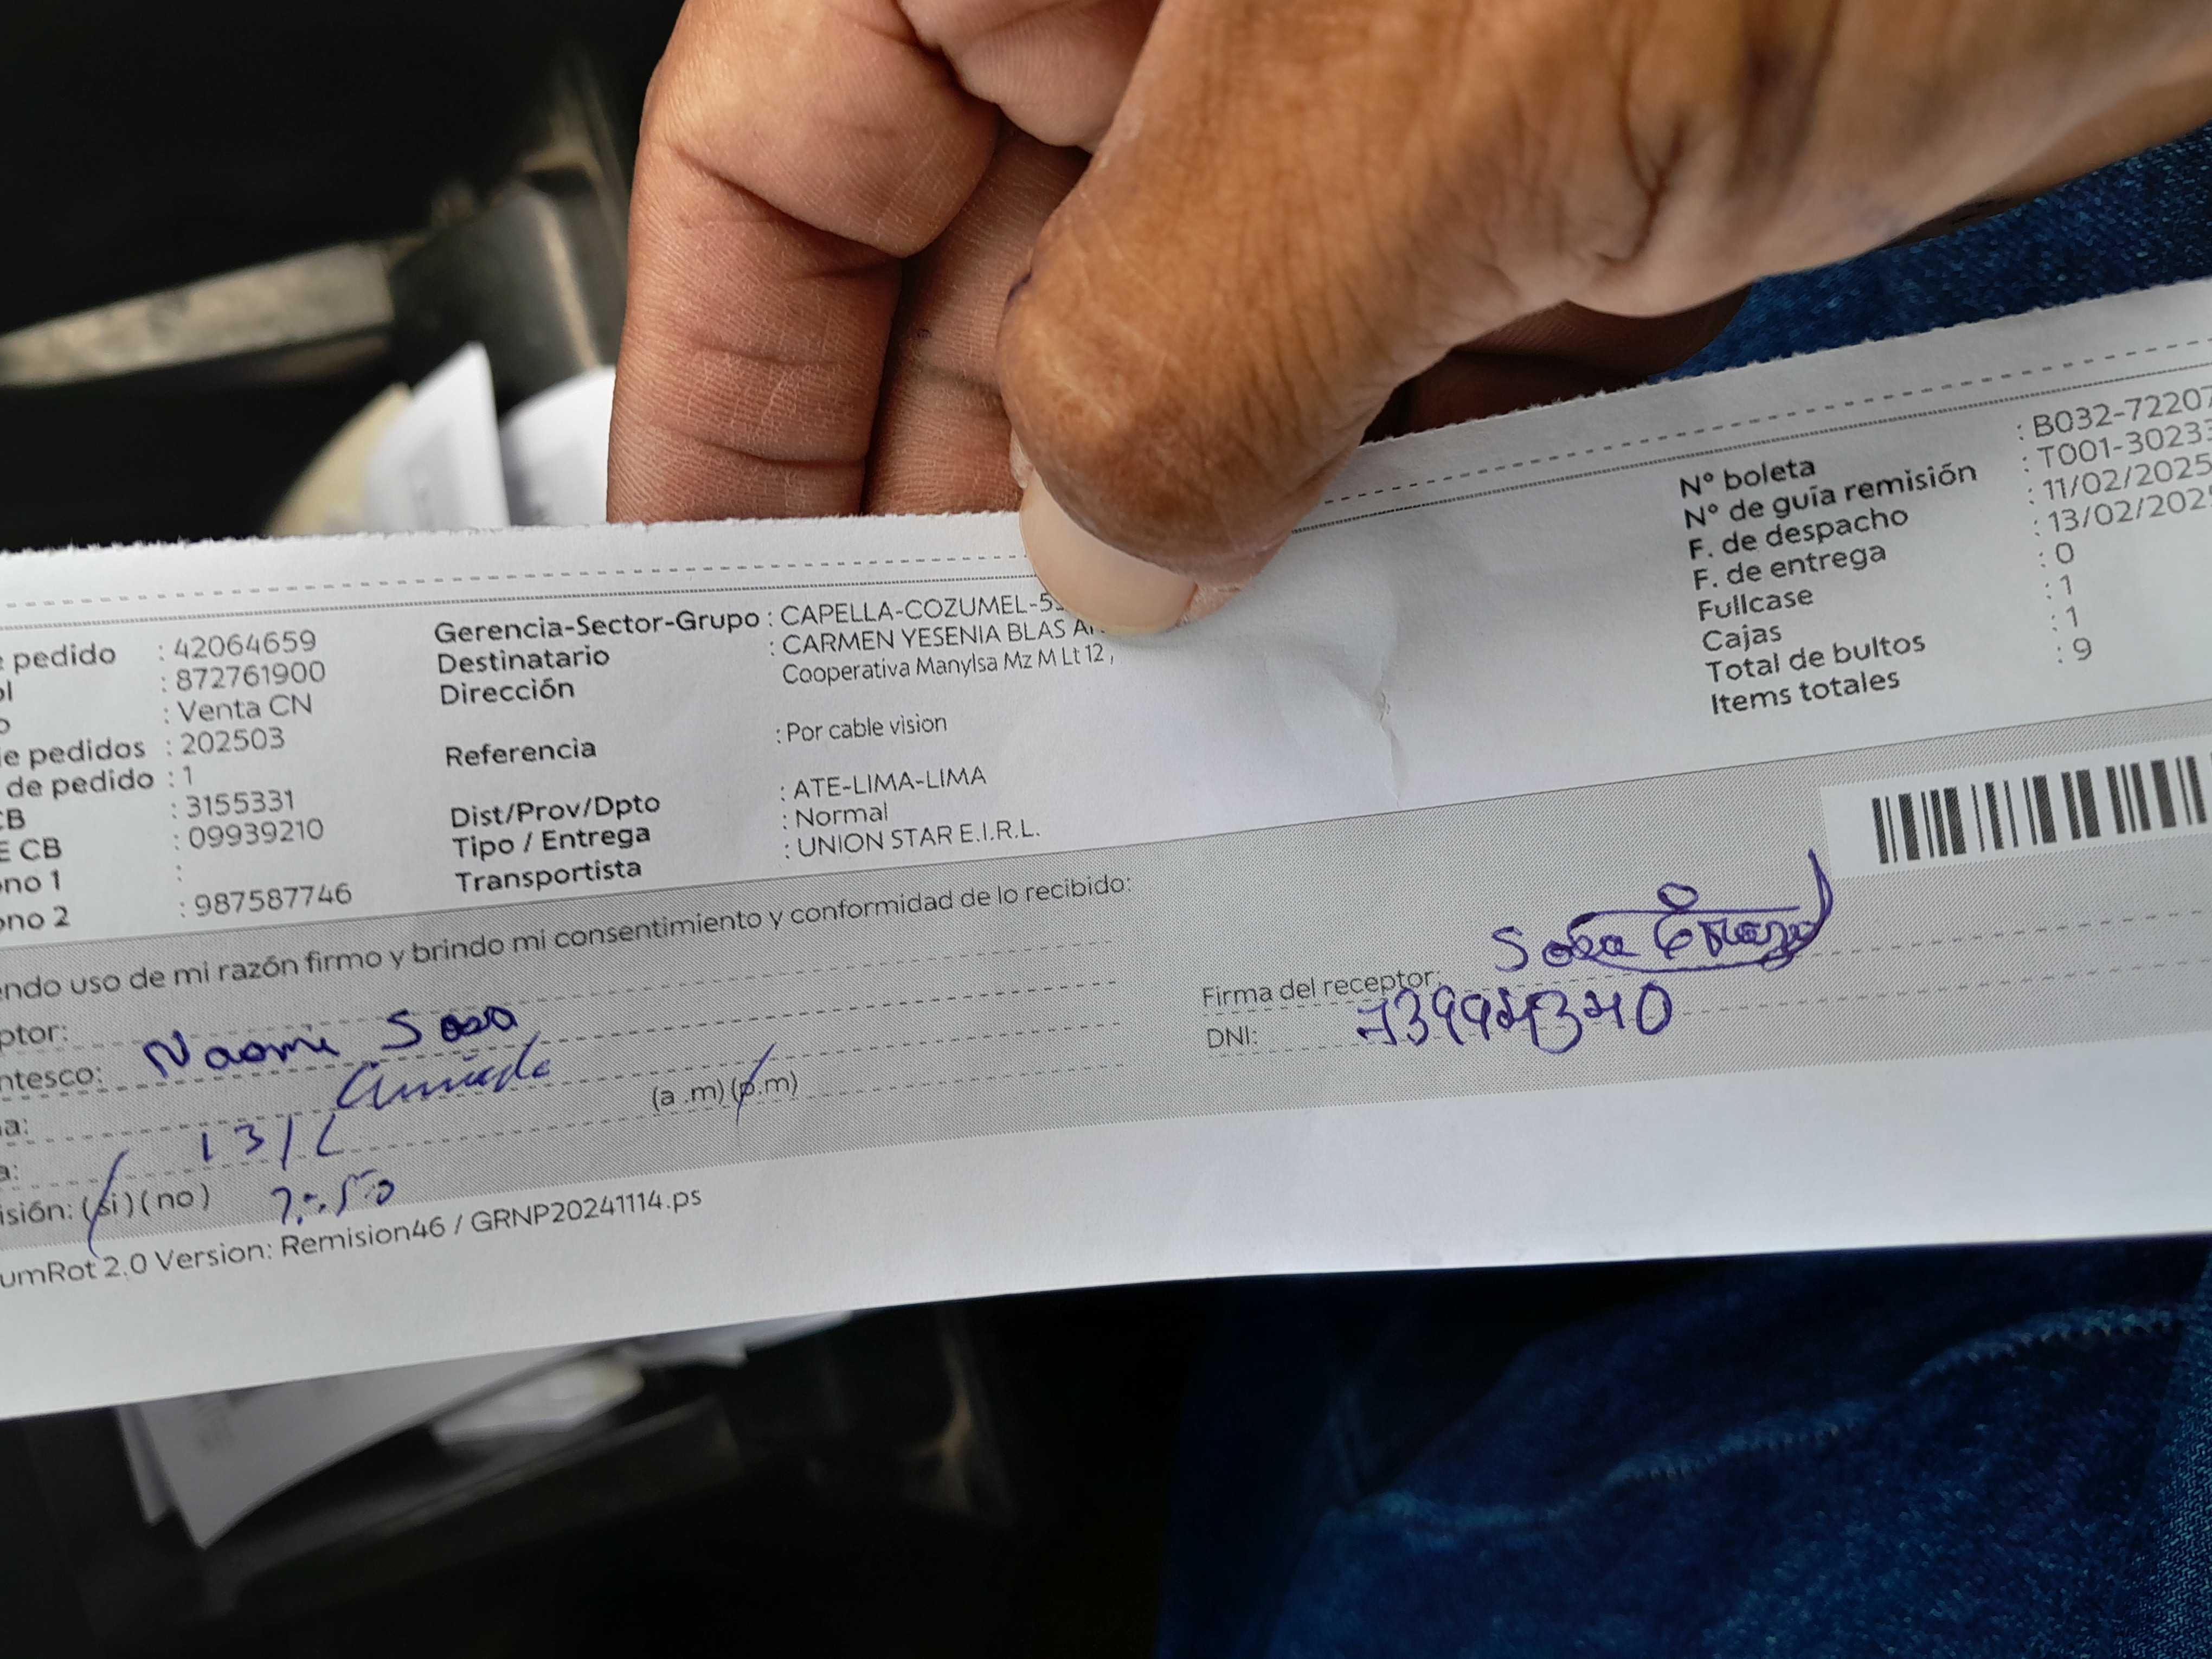 e pedido : 42064659
ol : 872761900
o : Venta CN
de pedidos : 202503
de pedido : 1
CB : 3155331
E CB : 09939210
ono 1 :
ono 2 : 987587746
Gerencia-Sector-Grupo : CAPELLA-COZUMEL-5
Destinatario : CARMEN YESENIA BLAS A
Dirección Cooperativa Manylsa Mz M Lt 12 ,
Referencia : Por cable vision
Dist/Prov/Dpto : ATE-LIMA-LIMA
Tipo / Entrega : Normal
Transportista : UNION STAR E.I.R.L.
N° boleta : B032-72207
N° de guía remisión : T001-30233
F. de despacho : 11/02/2025
F. de entrega : 13/02/202
Fullcase : 0
Cajas : 1
Total de bultos : 1
Items totales : 9
endo uso de mi razón firmo y brindo mi consentimiento y conformidad de lo recibido:
ptor: Naomi Sosa
ntesco:
a: 13/2
a: (a .m) (p.m)
isión: (si) (no) 2:50
Firma del receptor: Sosa
DNI:
umRot 2.0 Version: Remision46 / GRNP20241114.ps